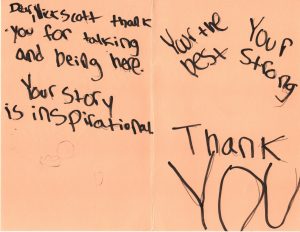 Dear Nick Scott thank
you for talking
and being here.
Your story
is inspirational.
Your the
best
Your
strong
Thank
YOU